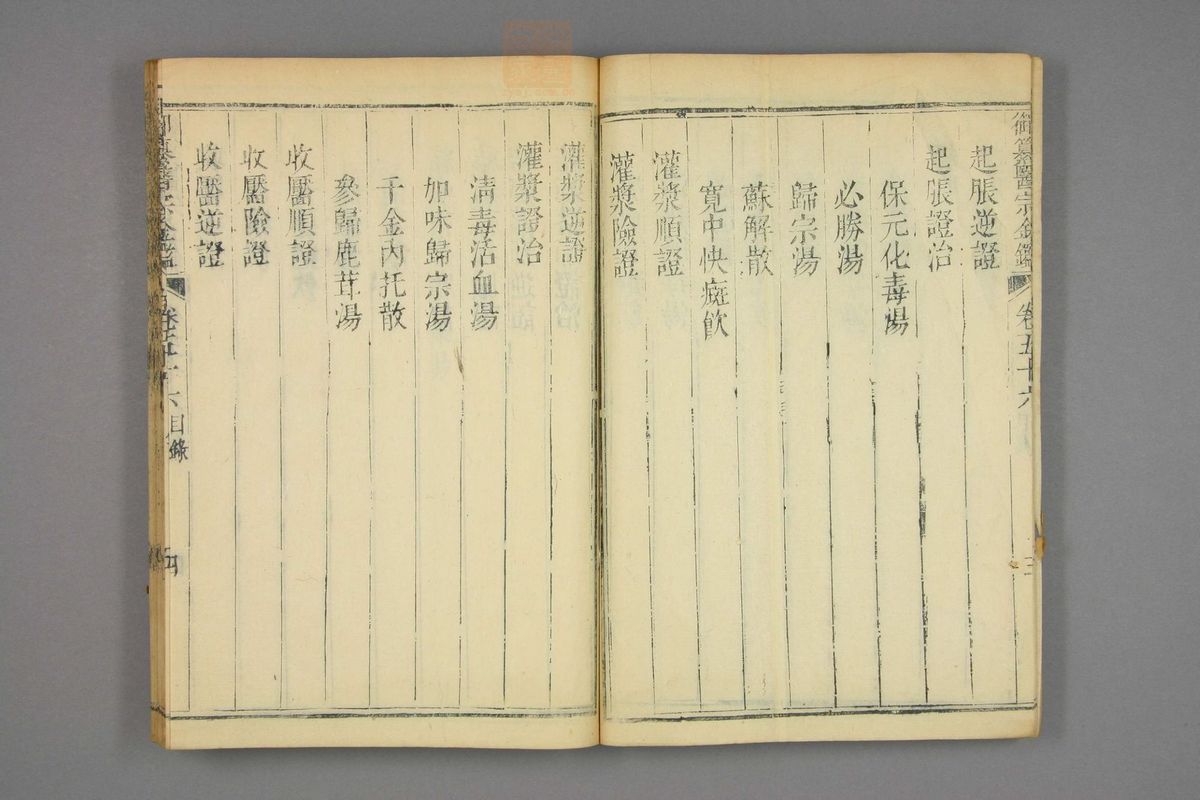 御纂醫宗金鑑 卷五十六
起脹逆證
起脹證治
保元化毒湯
必勝湯
歸宗湯
蘇解散
寛中快癍飮
灌漿順證
灌漿險證
灌漿逆證
灌漿證治
淸毒活血湯
加味歸宗湯
千金內托散
參歸鹿茸湯
收靨順證
收靨險證
收靨逆證
御纂醫宗金鑑 卷五十六 目錄 四